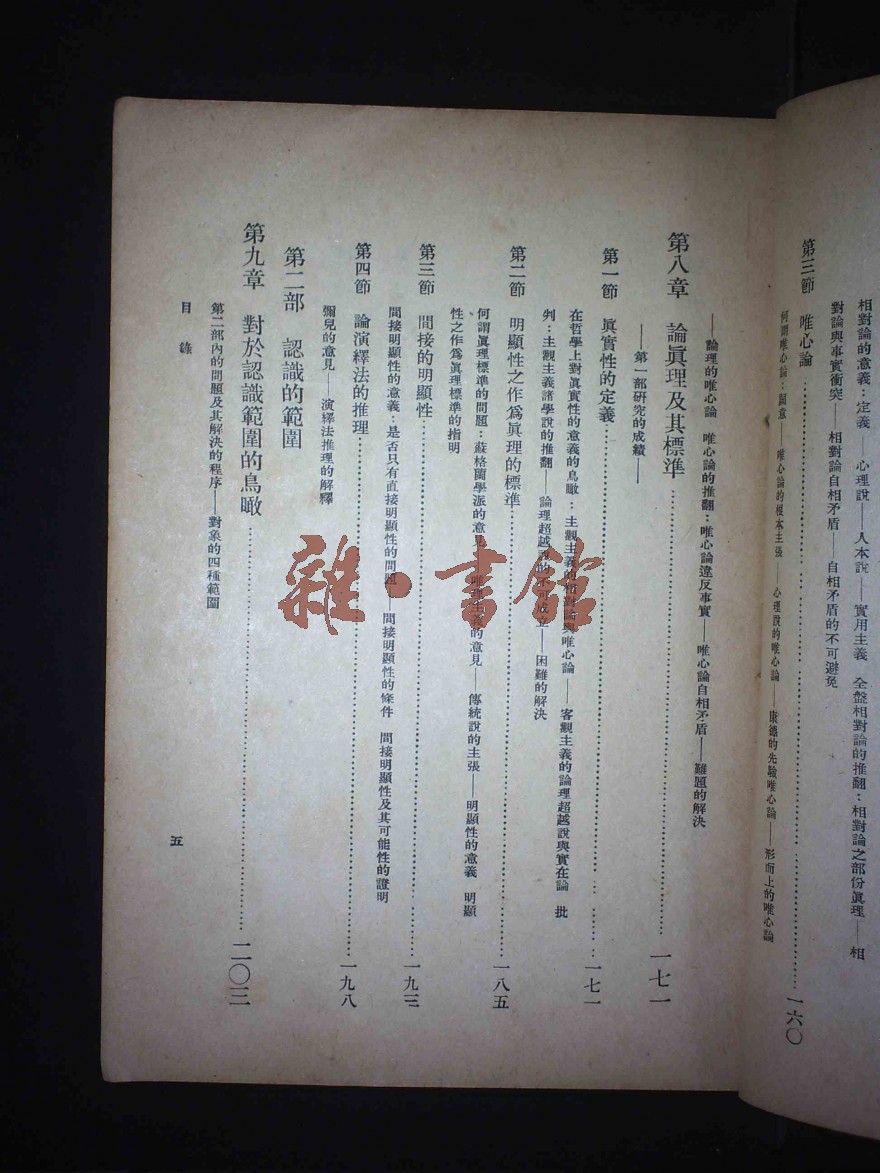 相對論的意義：定義——心理說——人本說——實用主義　全盤相對論的推翻：相對論之部份眞理——相
對論與事實衝突——相對論自相矛盾——自相矛盾的不可避免
第三節　唯心論……一六〇
何謂唯心論：圓意——唯心論的根本主張——心理說的唯心論——康德的先驗唯心論——形而上的唯心論
——論理的唯心論　唯心論的推翻：唯心論違反事實——唯心論自相矛盾——難題的解決
第八章　論眞理及其標準……一七一
——第一部研究的成績——
第一節　眞實性的定義……一七一
在哲學上對眞實性的意義的鳥瞰：主觀主義的相對論與唯心論——客觀主義的論理超越說與實在論　批
判：主觀主義諸學說的推翻——論理超越說的不可成立——困難的解決
第二節　明顯性之作爲眞理的標準……一八五
何謂眞理標準的問題：蘇格蘭學派的意見——唯物主義的意見——傳統說的主張——明顯性的意義　明顯
性之作爲眞理標準的指明
第三節　間接的明顯性……一九三
間接明顯性的意義：是否只有直接明顯性的問題——間接明顯性的條件　間接明顯性及其可能性的證明
第四節　論演繹法的推理……一九八
彌兒的意見——演繹法推理的解釋
第二部　認識的範圍
第九章　對於認識範圍的鳥瞰……二〇三
第二部內的問題及其解決的程序——對象的四種範圍
目錄
五
雜·書館